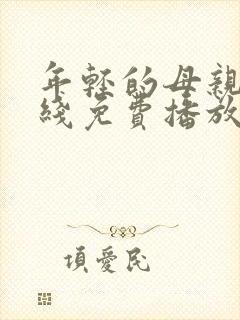 年輕的母親
綫免費播放
項愛民